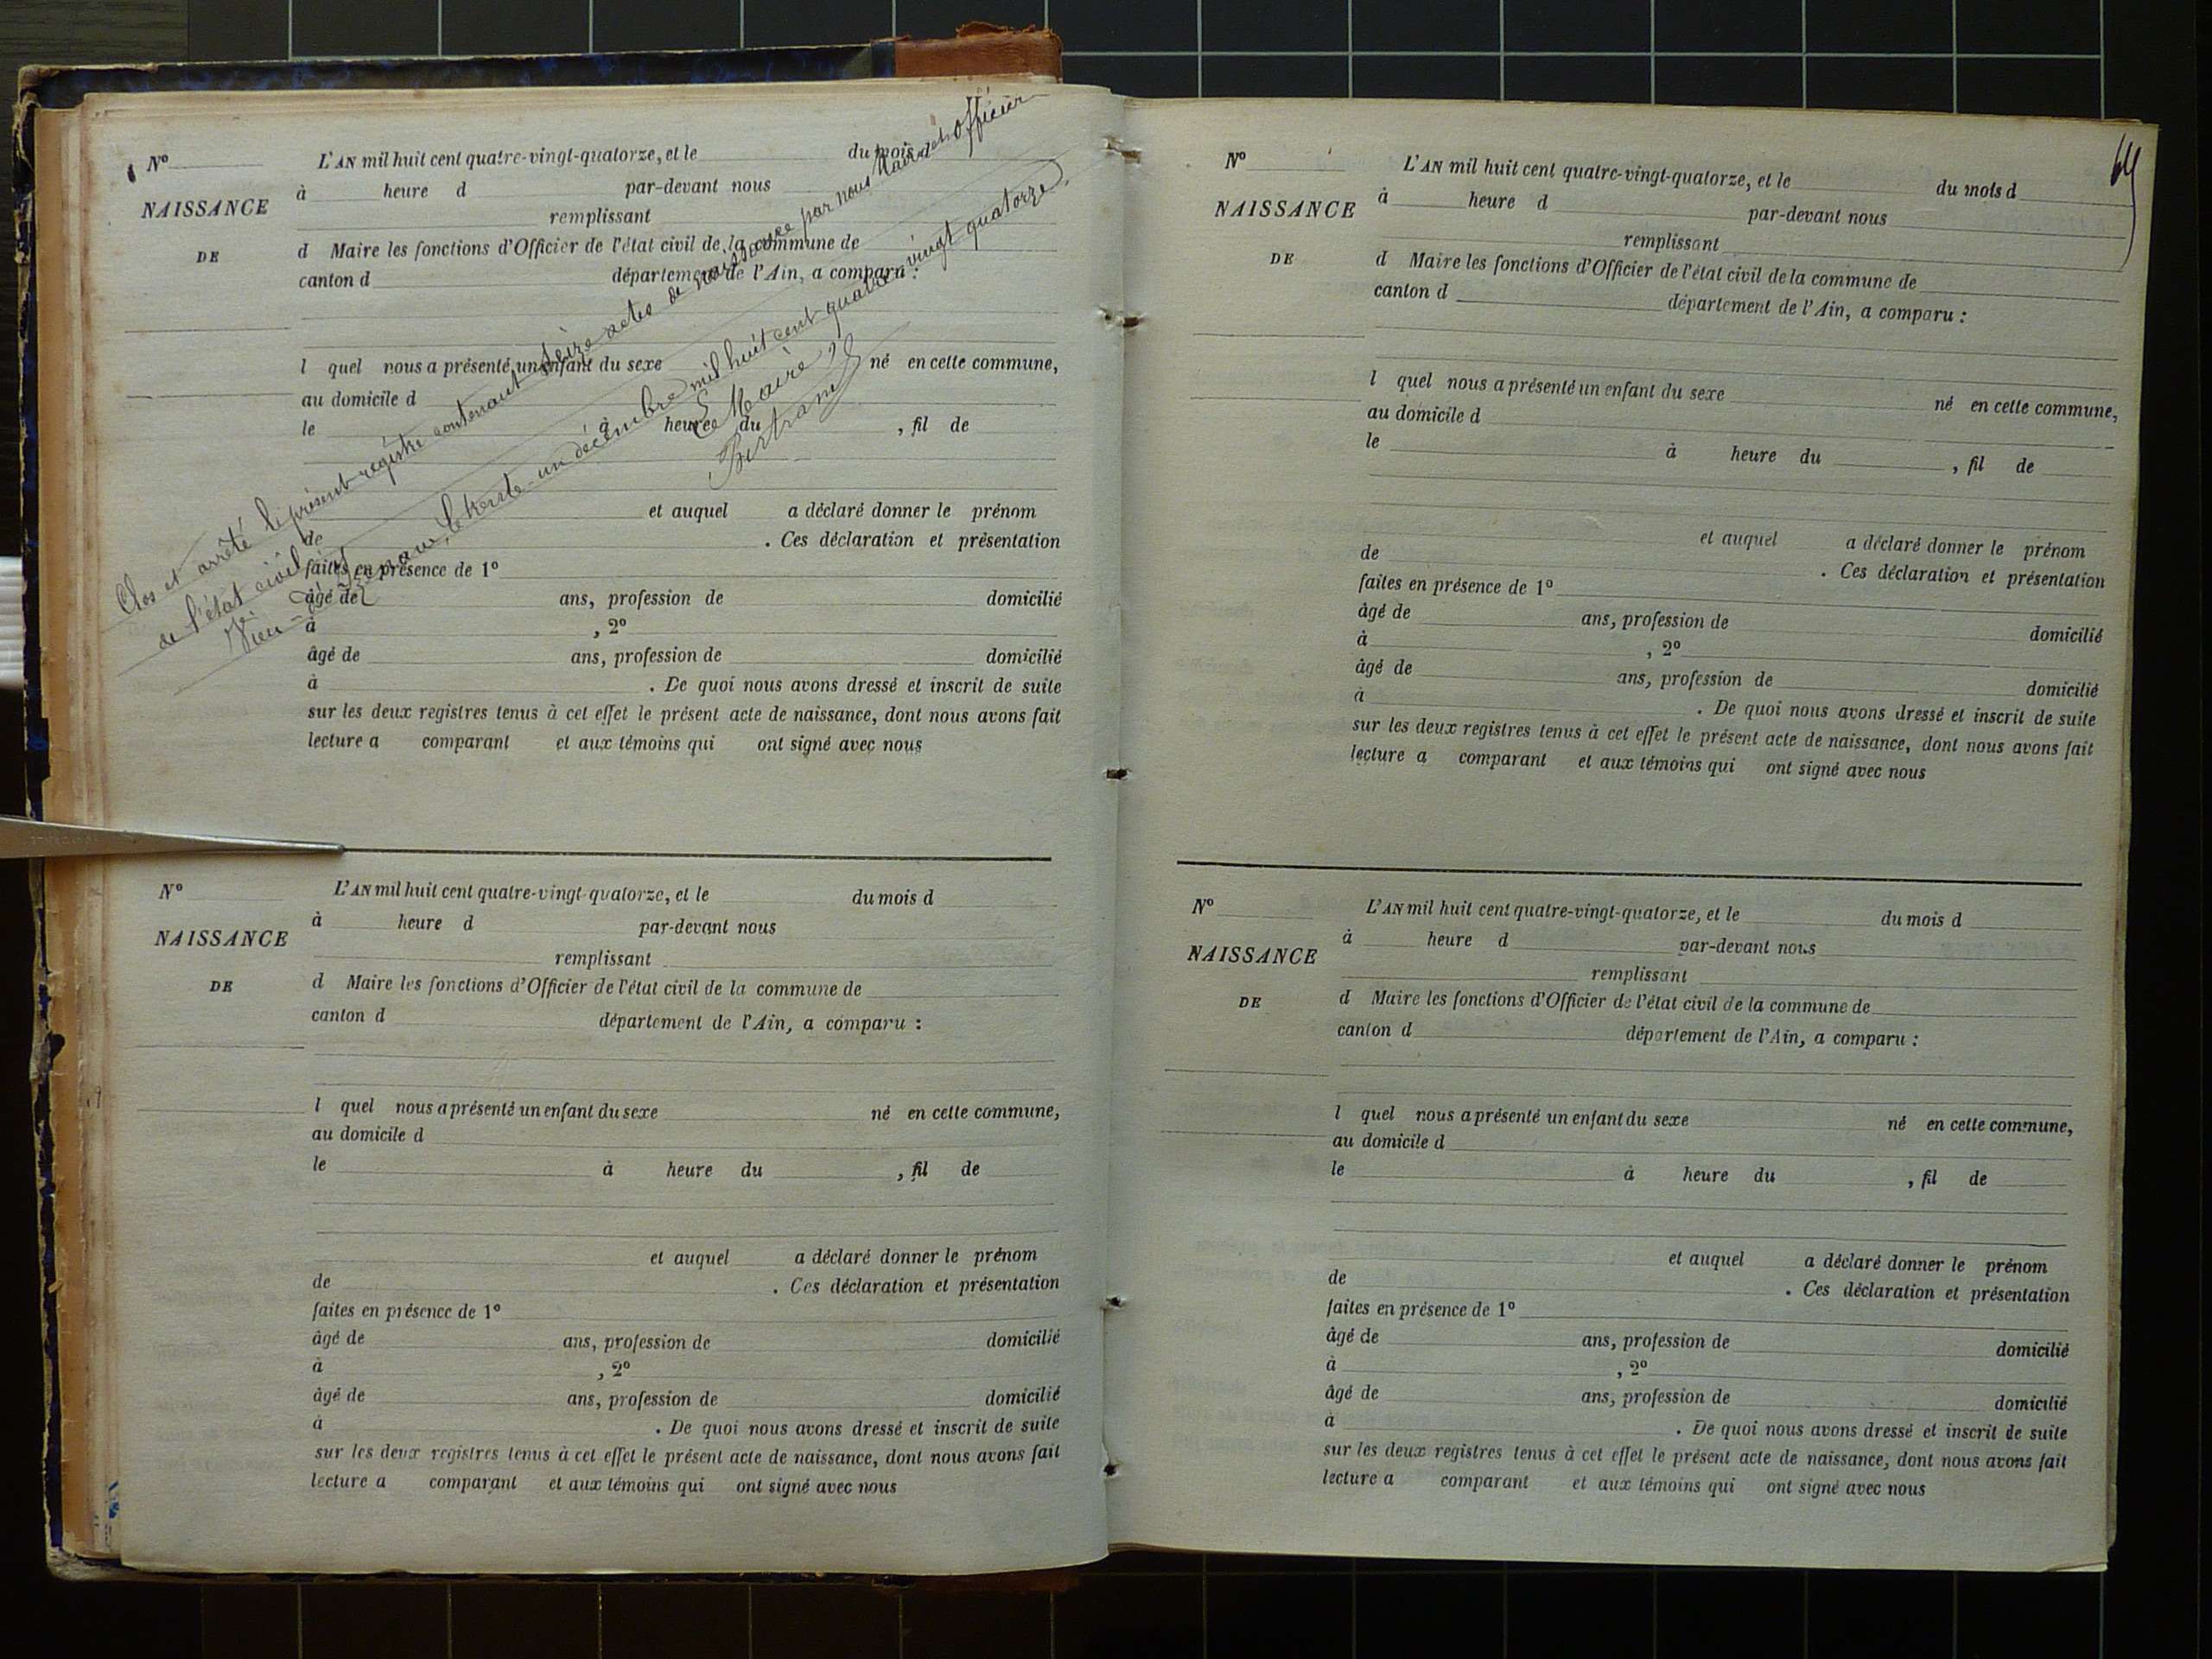 Nº L'AN mil huit cent quatre-vingt-quatorze, et le du mois d
à heure d par-devant nous
NAISSANCE
remplissant
DE
d Maire les fonctions d'Officier de l'état civil de la commune de
canton d département de l'Ain, a comparu :
l quel nous a présenté un enfant du sexe né en cette commune,
au domicile d
le à heure du , fil de
et auquel a déclaré donner le prénom
de . Ces déclaration et présentation
faites en présence de 1º
âgé de ans, profession de domicilié
à , 2º
âgé de ans, profession de domicilié
à . De quoi nous avons dressé et inscrit de suite
sur les deux registres tenus à cet effet le présent acte de naissance, dont nous avons fait
lecture a comparant et aux témoins qui ont signé avec nous
Clos et arrêté le présent registre contenant seize actes de naissance par nous Maire et officier
de l'état civil
le trente-un décembre mil huit cent quatre-vingt quatorze.
Le Maire,
Bertrand
Nº L'AN mil huit cent quatre-vingt-quatorze, et le du mois d
à heure d par-devant nous
NAISSANCE
remplissant
DE
d Maire les fonctions d'Officier de l'état civil de la commune de
canton d département de l'Ain, a comparu :
l quel nous a présenté un enfant du sexe né en cette commune,
au domicile d
le à heure du , fil de
et auquel a déclaré donner le prénom
de . Ces déclaration et présentation
faites en présence de 1º
âgé de ans, profession de domicilié
à , 2º
âgé de ans, profession de domicilié
à . De quoi nous avons dressé et inscrit de suite
sur les deux registres tenus à cet effet le présent acte de naissance, dont nous avons fait
lecture a comparant et aux témoins qui ont signé avec nous
Nº L'AN mil huit cent quatre-vingt-quatorze, et le du mois d
à heure d par-devant nous
NAISSANCE
remplissant
DE
d Maire les fonctions d'Officier de l'état civil de la commune de
canton d département de l'Ain, a comparu :
l quel nous a présenté un enfant du sexe né en cette commune,
au domicile d
le à heure du , fil de
et auquel a déclaré donner le prénom
de . Ces déclaration et présentation
faites en présence de 1º
âgé de ans, profession de domicilié
à , 2º
âgé de ans, profession de domicilié
à . De quoi nous avons dressé et inscrit de suite
sur les deux registres tenus à cet effet le présent acte de naissance, dont nous avons fait
lecture a comparant et aux témoins qui ont signé avec nous
Nº L'AN mil huit cent quatre-vingt-quatorze, et le du mois d
à heure d par-devant nous
NAISSANCE
remplissant
DE
d Maire les fonctions d'Officier de l'état civil de la commune de
canton d département de l'Ain, a comparu :
l quel nous a présenté un enfant du sexe né en cette commune,
au domicile d
le à heure du , fil de
et auquel a déclaré donner le prénom
de . Ces déclaration et présentation
faites en présence de 1º
âgé de ans, profession de domicilié
à , 2º
âgé de ans, profession de domicilié
à . De quoi nous avons dressé et inscrit de suite
sur les deux registres tenus à cet effet le présent acte de naissance, dont nous avons fait
lecture a comparant et aux témoins qui ont signé avec nous